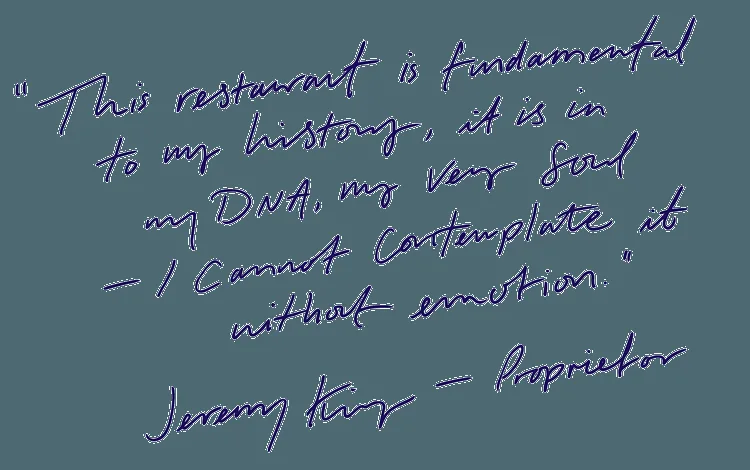 "This restaurant is fundamental
to my history, it is in
my DNA, my very soul
– I cannot contemplate it
without emotion."
Jeremy King – Proprietor